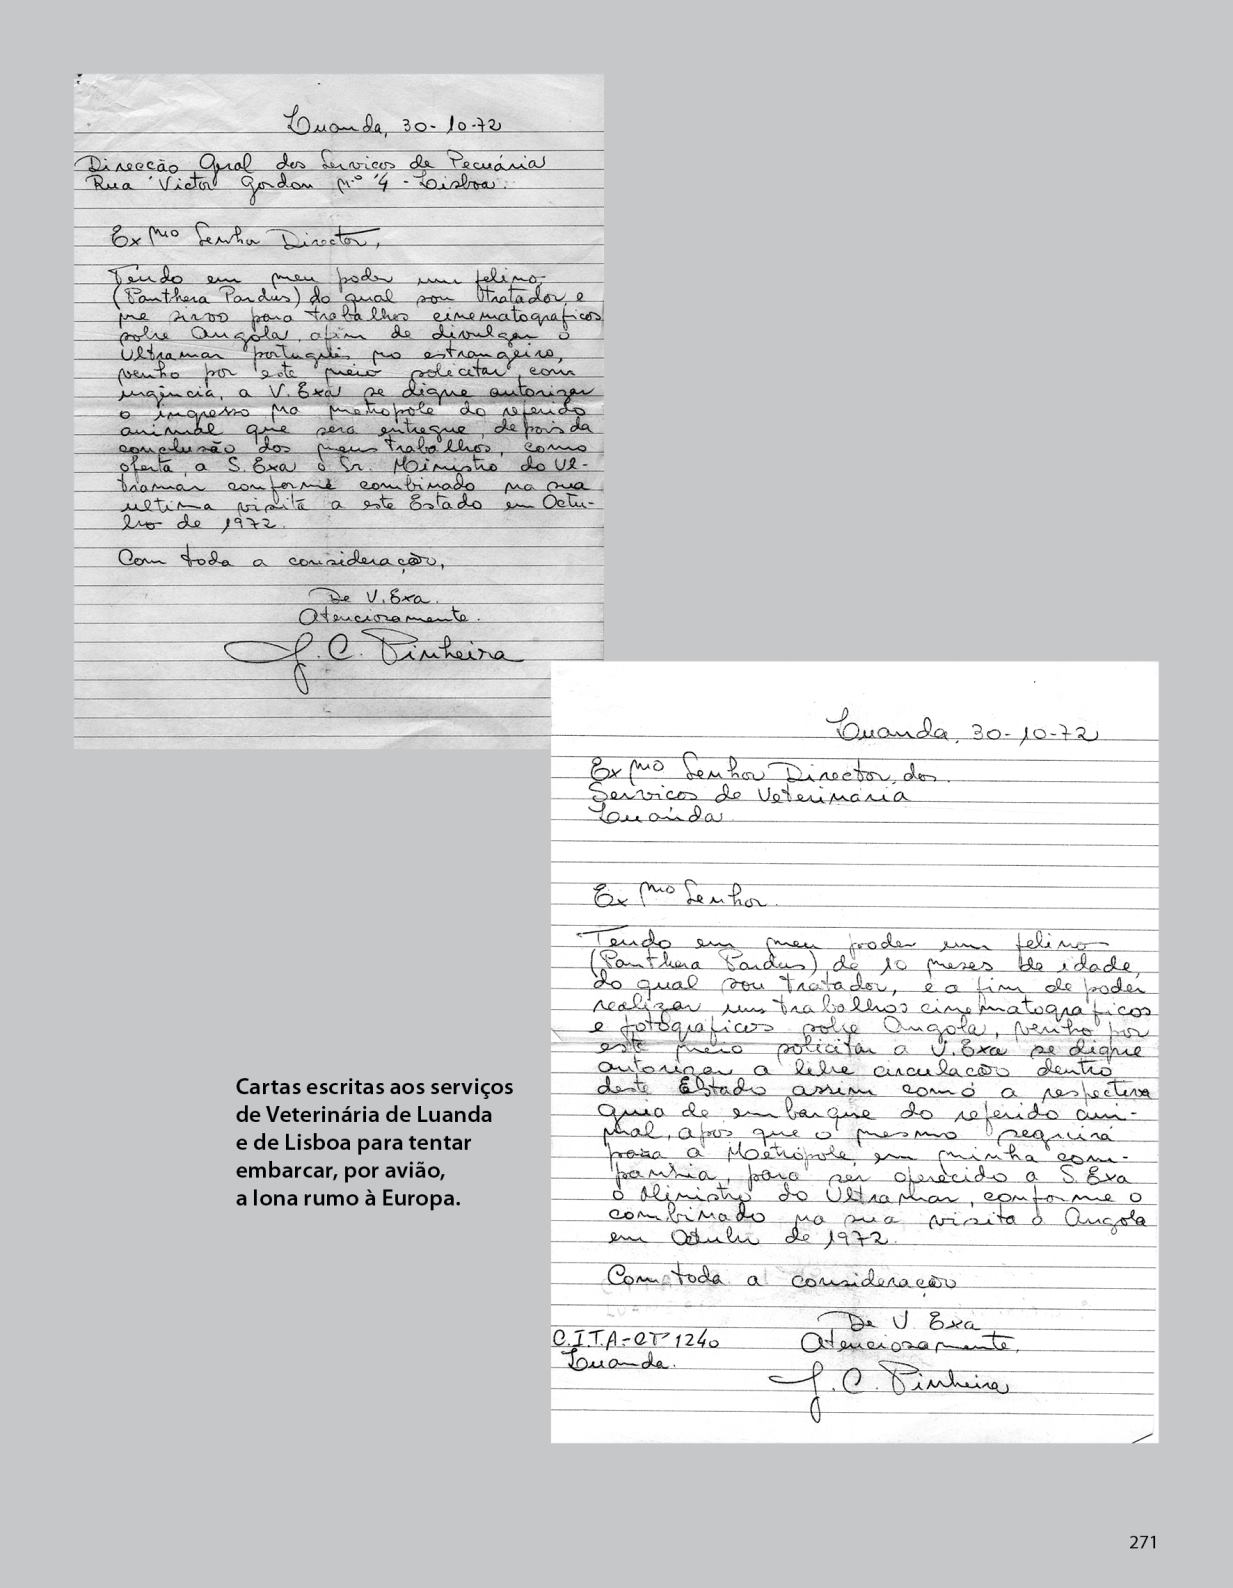 Luanda, 30-10-72
Direcção Geral dos Serviços de Pecuária
Rua Victor Gordon nº 4 - Lisboa.
Exmo Senhor Director,
Tendo em meu poder um felino
(Panthera Pardus) do qual sou tratador, e
me sirvo para trabalhos cinematograficos
sobre Angola, afim de divulgar o
Ultramar português no estrangeiro,
venho por este meio solicitar, com
urgência, a V. Exa se digne autorizar
o ingresso na metropole do referido
animal que será entregue, depois da
conclusão dos meus trabalhos, como
oferta, a S. Exa o Sr. Ministro do Ul-
tramar conforme combinado na sua
ultima visita a este Estado em Octu-
bro de 1972.
Com toda a consideração,
De V. Exa.
Atenciosamente.
J. C. Pinheira
Luanda, 30-10-72
Exmo Senhor Director, dos
Serviços de Veterinária
Luanda
Exmo Senhor
Tendo em meu poder um felino
(Panthera Pardus) de 10 meses de idade,
do qual sou tratador, e a fim de poder
realizar uns trabalhos cinematograficos
e fotograficos sobre Angola, venho por
este meio solicitar a V. Exa se digne
autorizar a libre circulação dentro
deste Estado assim como a respectiva
guia de embarque do referido ani-
mal, após que o mesmo seguirá
para a Metrópole, em minha com-
panhia, para ser oferecido a S. Exa
o Ministro do Ultramar, conforme o
combinado na sua visita a Angola
em Octubro de 1972.
Com toda a consideração
De V. Exa
Atenciosamente,
C.I.T.A-CT 1240
Luanda.
J. C. Pinheira
Cartas escritas aos serviços
de Veterinária de Luanda
e de Lisboa para tentar
embarcar, por avião,
a Iona rumo à Europa.
271